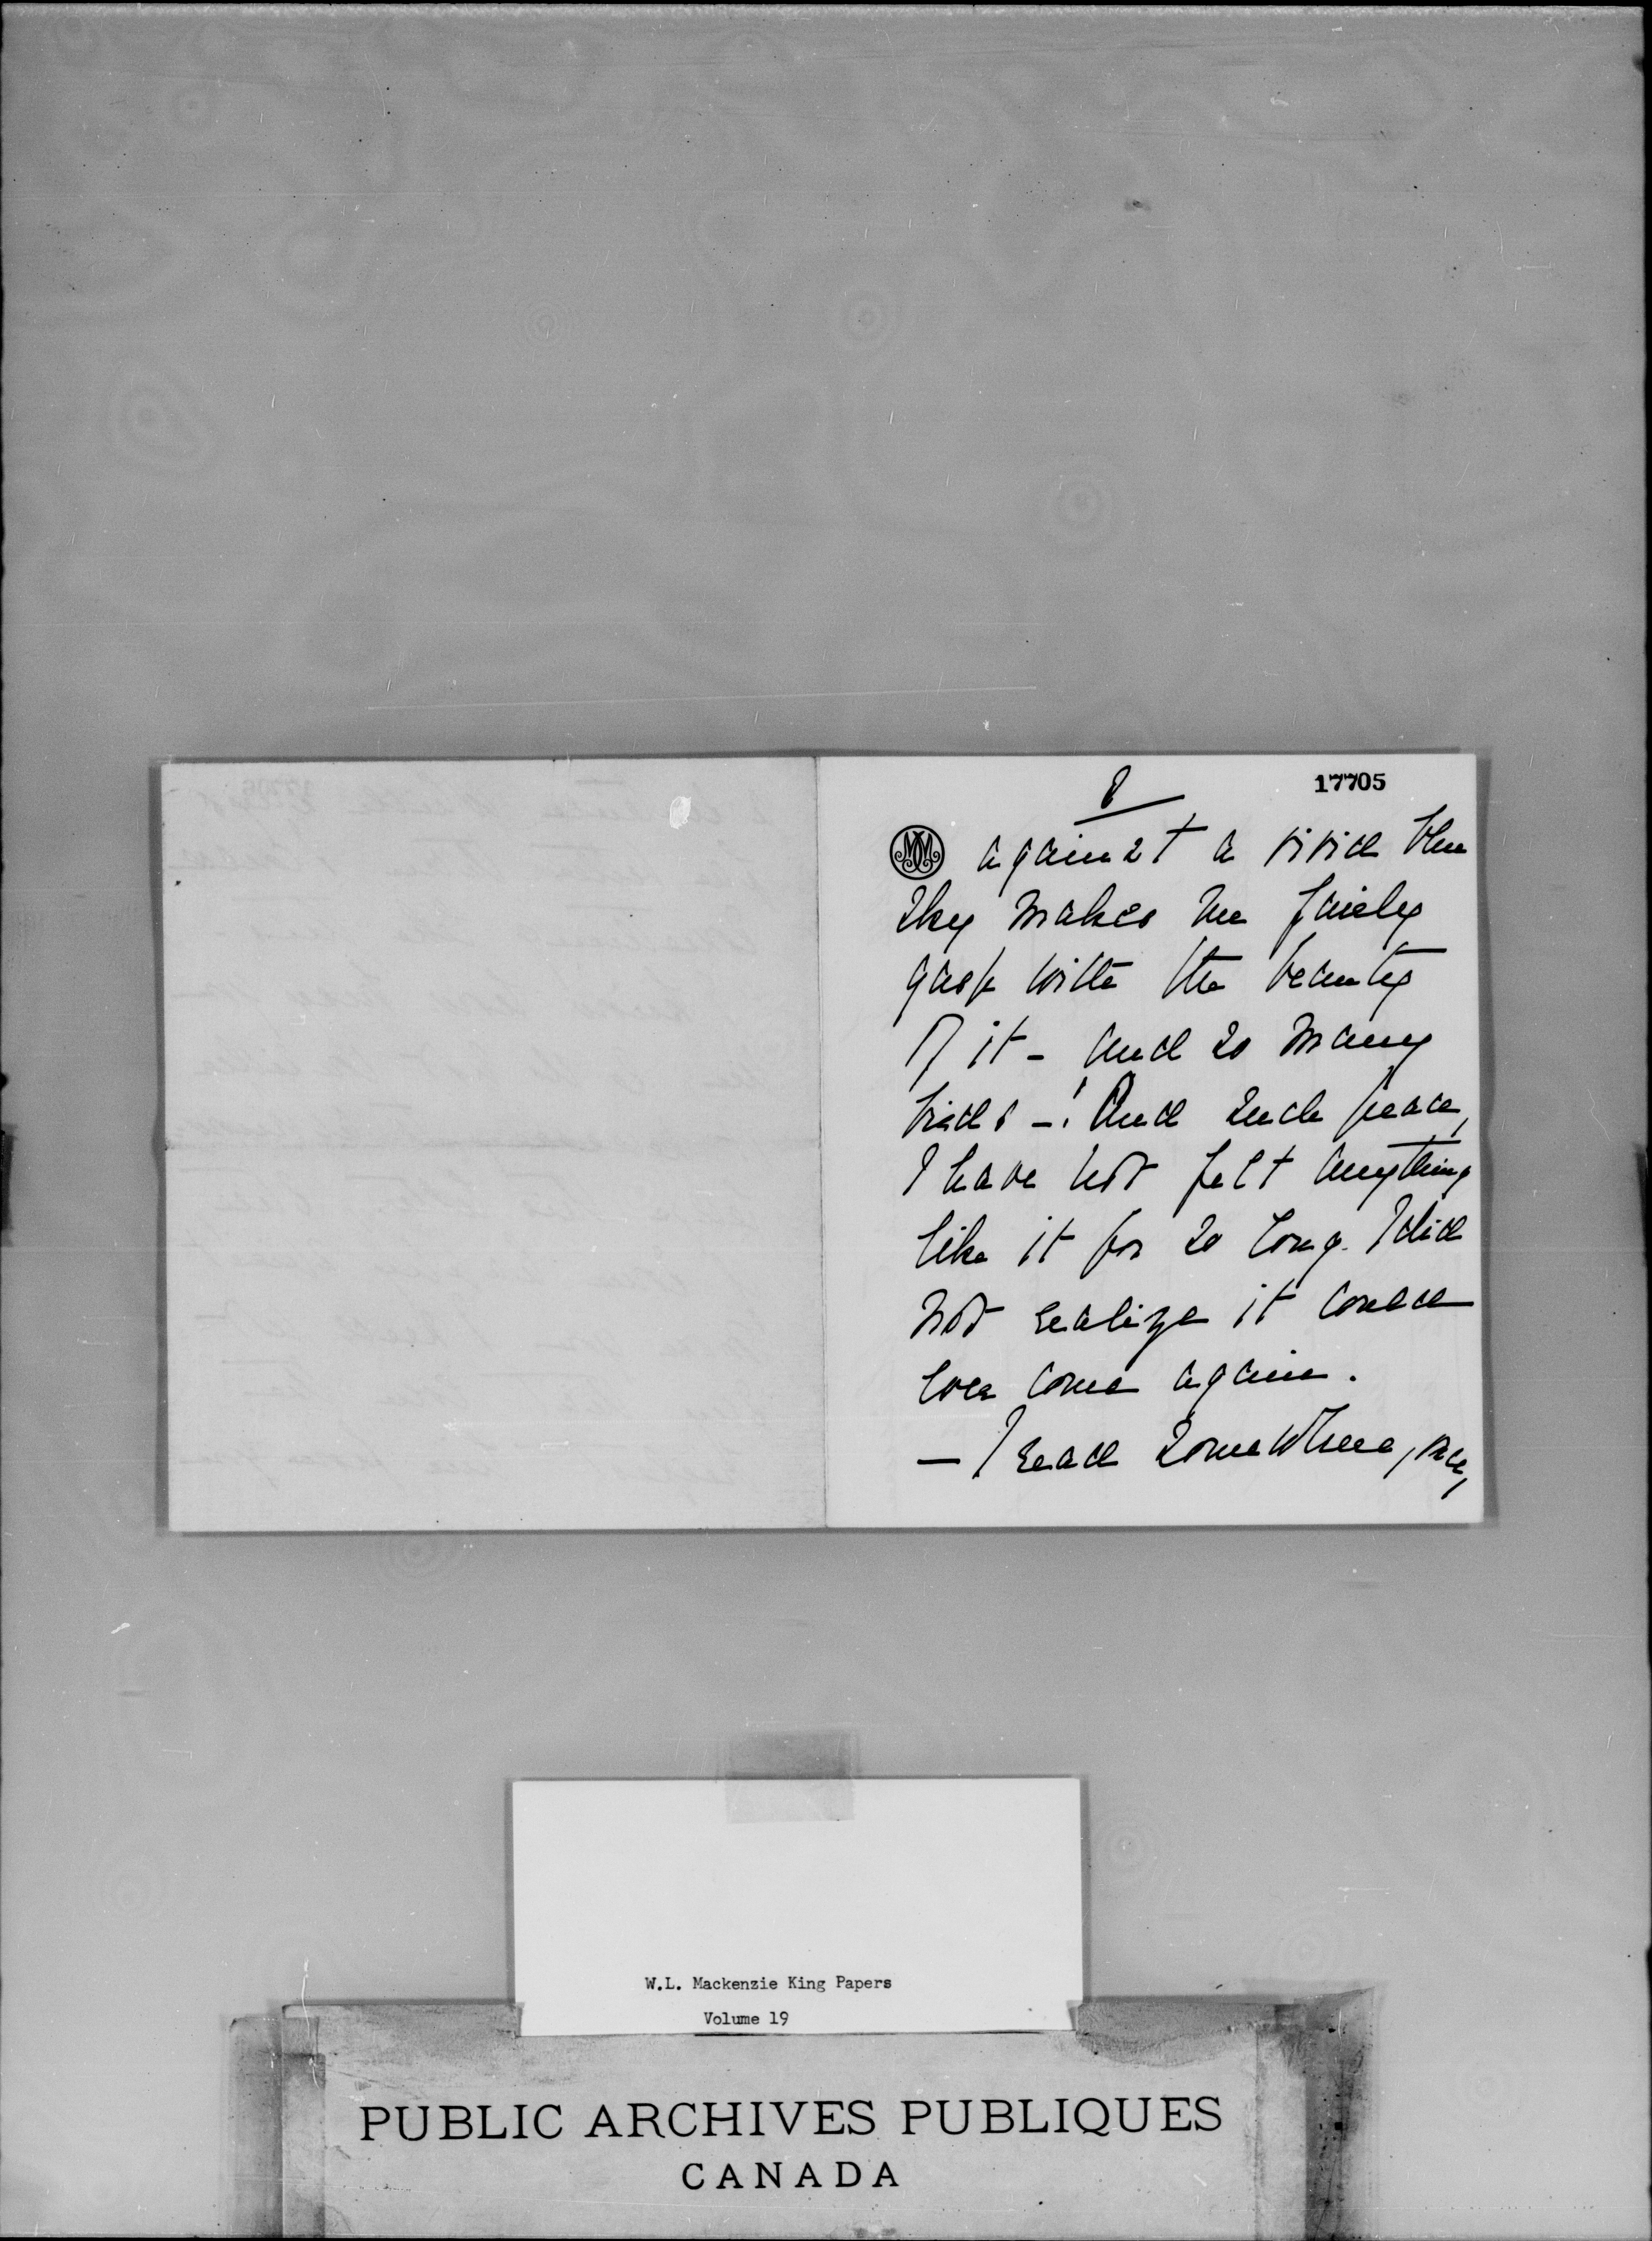 8
17705
against a vivid blue
sky makes me fairly
gasp with the beauty
of it - and so many
birds -! And such peace,
I have not felt anything
like it for so long. I did
not realize it could
ever come again.
— I read somewhere, once,
W.L. Mackenzie King Papers
Volume 19
PUBLIC ARCHIVES PUBLIQUES
CANADA